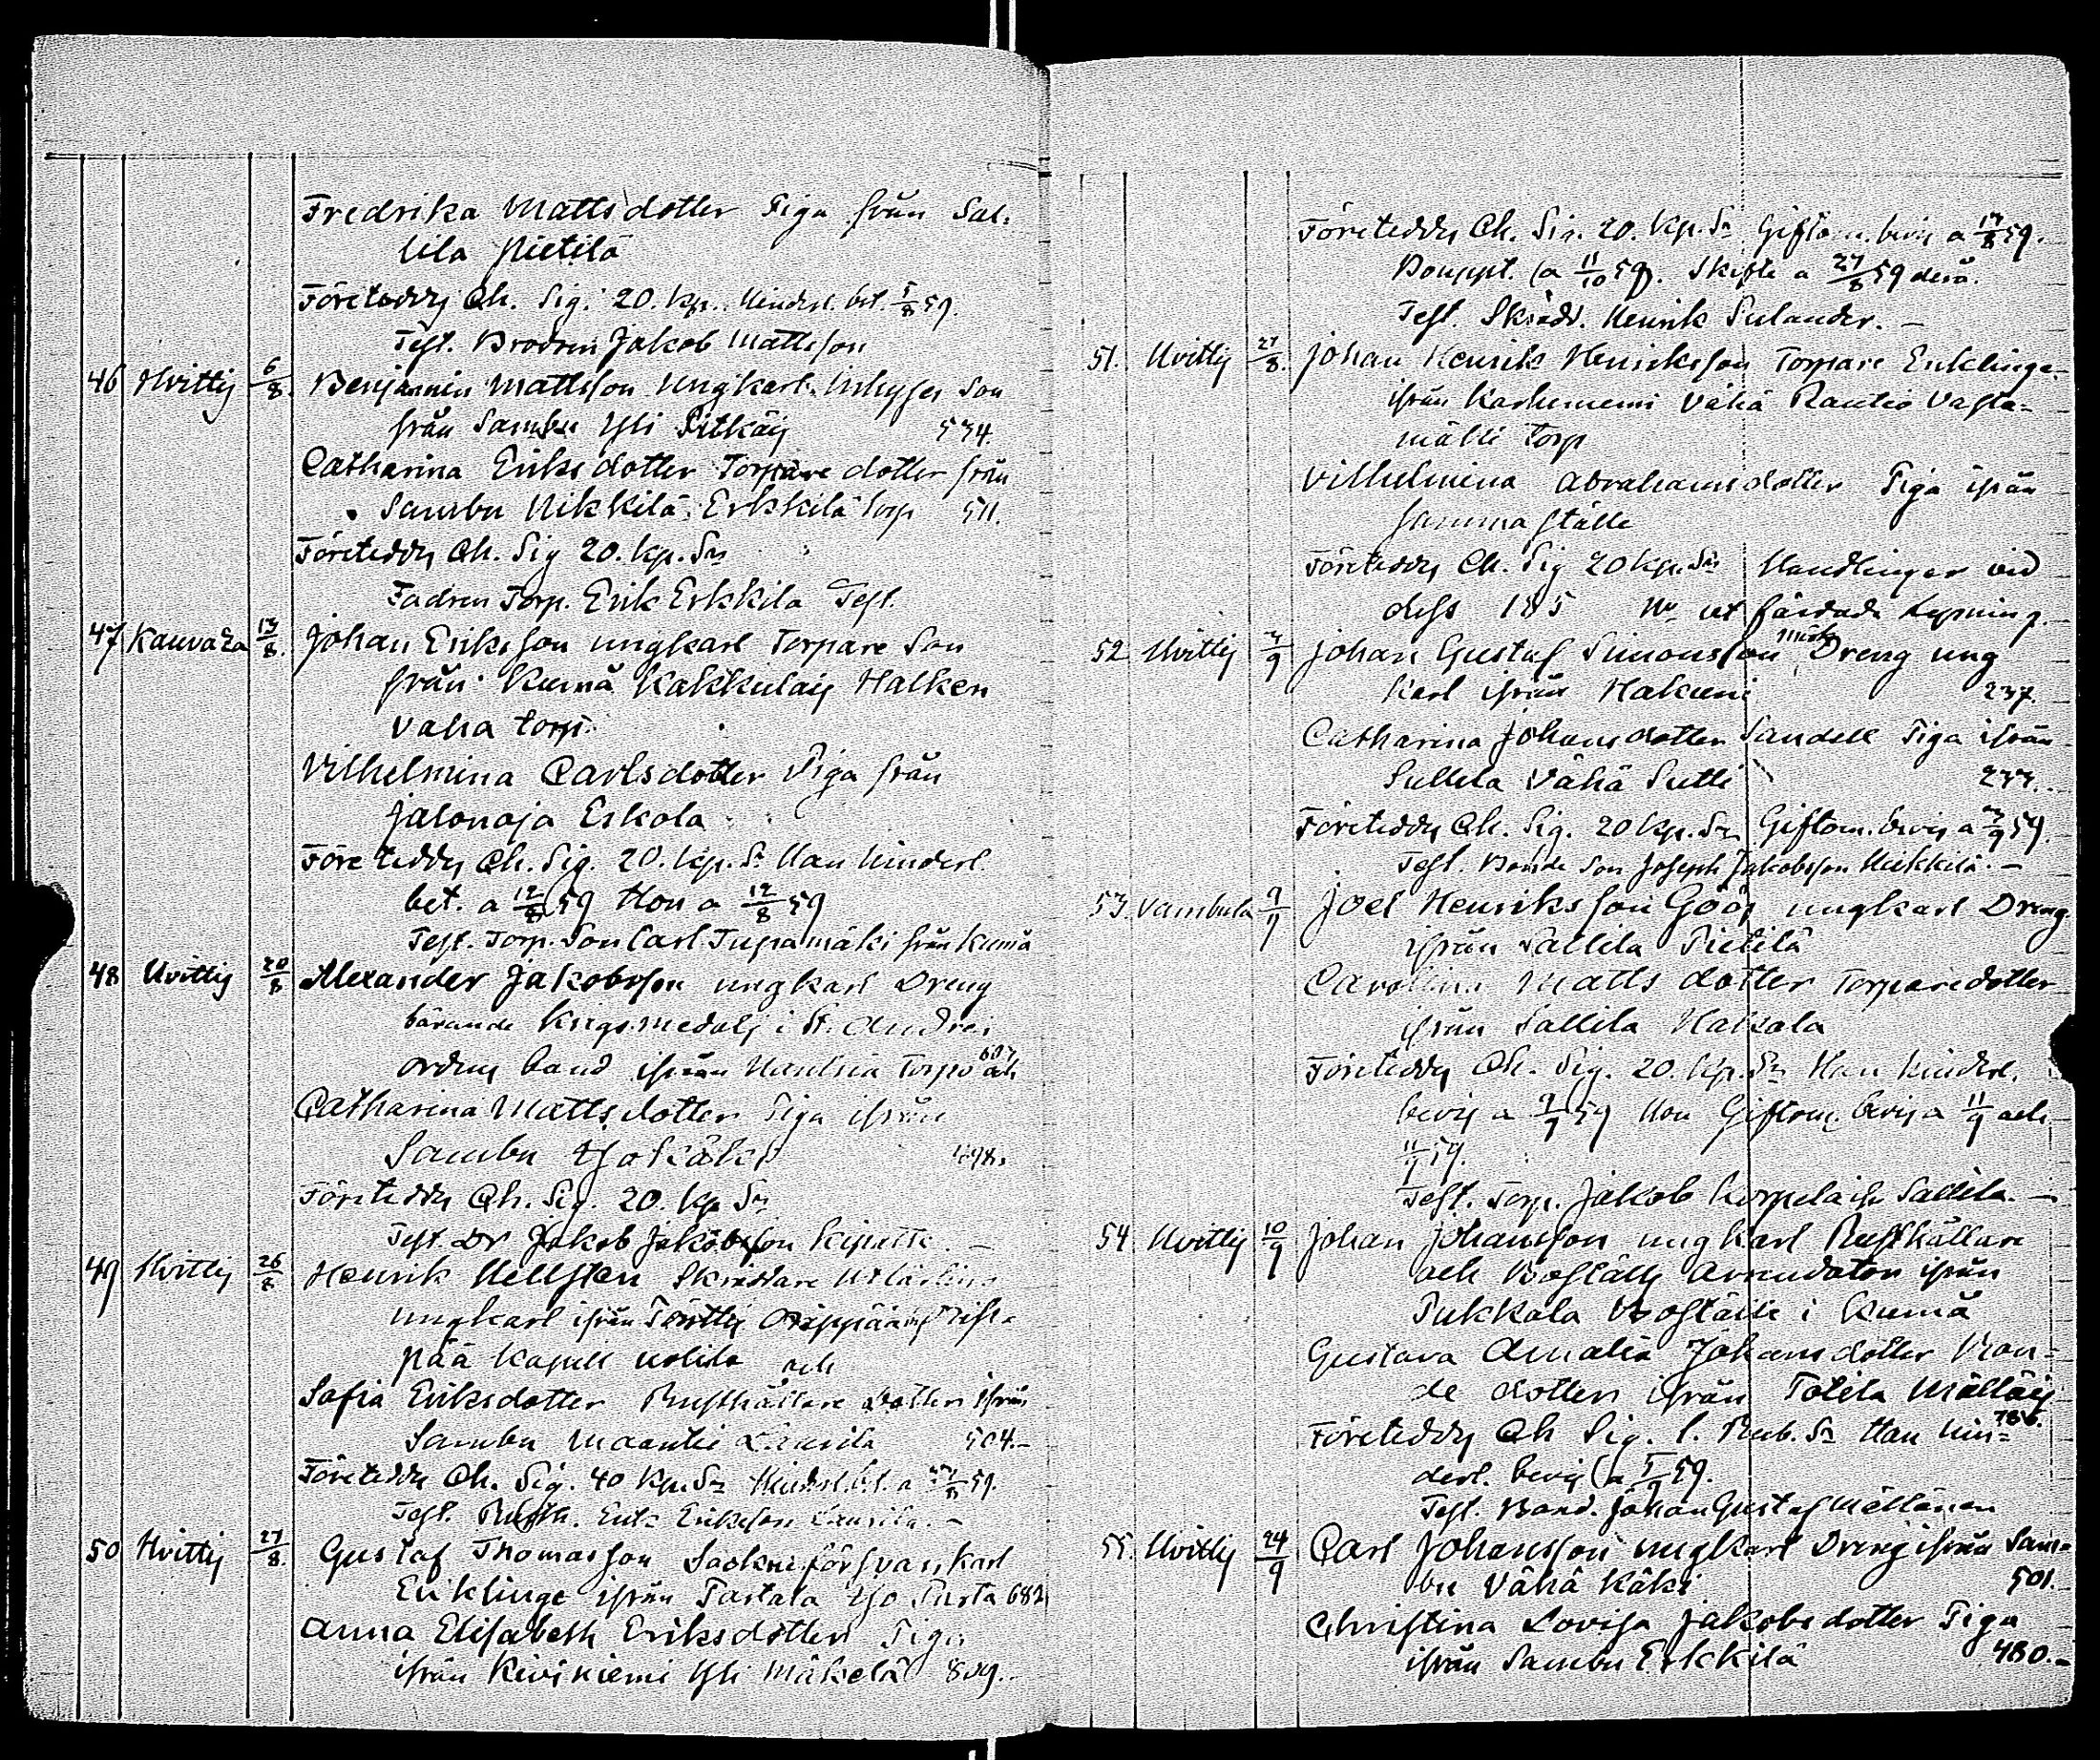 Fredrika Mattsdotter Piga från Sal-
lila Pietilä
Företeddes Ch. Sig. 20. kp. Hinderl. bet. 5/8 59.
Test. Brodren Jakob Mattsson
46 Hvittis 6/8. Benjamin Mattsson Ungkarl Inhyses Son
från Sambu Yli Pitkäis 534.
Catharina Eriksdotter Torpare dotter från
Sambu Nikkilä Erkkilä torp 511.
Företeddes Ch. Sig 20. kp. Sr
Fadren Torp. Erik Erkkila Test.
47 Kauvatza 13/8. Johan Eriksson ungkarl Torpare Son
från Kumå Kakkulais Halken
vaha torp.
Vilhelmina Carlsdotter Piga från
Jalonoja Eskola
Företeddes Ch. Sig. 20. kp. Sr Han hinderl.
bet. a 12/8 59 Hon a 12/8 59
Test. Torp. Son Carl Tupamäki från Kumå
48 Hvittis 20/8 Alexander Jakobsson ungkarl Dreng
bärande krigsmedalj i St. Andrei
ordens band ifrån Torp och
Catharina Mattsdotter Piga ifrån
Sambu Yso Käki 498.
Företeddes Ch. Sig. 20. kp Sr
Test. Dr Jakob Jakobsson
49 Hvittis 26/8 Henrik Hellsten Skräddare
ungkarl ifrån Oripää
pää Kapell och
Sofia Eriksdotter Rusthållare dotter ifrån
Sambu Maantie Laurila 504.-
Företeddes Ch. Sig. 40 kp. Sr Hinderl. bet. a 59.
Test. Rusth. Erik Eriksson Laurila. -
50 Hvittis 27/8. Gustaf Thomasson Sockneförsvarskarl
Enklinge ifrån Yso 682
Anna Elisabeth Eriksdotter Piga
ifrån Kiviniemi Yli Mäkelä 809.-
Företeddes Ch. Sig. 20. kp. Sr Giftom. bevis a 17/8 59.
Bouppt. (a 11/10 59). Skifte a 27/8 59
Test. Skrädd. Henrik Sulander. -
51. Hvittis 27/8. Johan Henrik Henriksson Torpare Enklinge
ifrån Karhiniemi Vähä Rautio Vasta-
mälli torp
Vilhelmina Abrahamsdotter Piga ifrån
samma ställe
Företeddes Ch. Sig 20 kp. Sr Handlingar vid
dess No ut färdade Lysning.
52 Hvittis Johan Gustaf Simonsson Dreng ung
karl ifrån Hakuni 237.
Catharina Johansdotter Sandell Piga ifrån
Suttila Vähä Sutti 233.
Företeddes Ch. Sig. 20 kp. Sr Giftom. bevis a 59.
Test. Bonde Son Joseph Jakobsson Heikkilä. -
53 Vambula 9/9 Joel Henriksson Göös ungkarl Dreng
ifrån Sallila Pietilä
Carolina Mattsdotter Torparedotter
ifrån Sallila Hakala
Företeddes Ch. Sig. 20. kp. Sr Han hinderl.
bevis a 9/9 59 Hon Giftom. bevis a 11/9 och
11/9 59.
Test. Torp. Jakob Korpela ifr Sallila. -
54 Hvittis 10/9 Johan Johansson ungkarl Rusthållare
och Boställs Arrendator ifrån
Pukkala Boställe i Kumå
Gustava Amalia Johansdotter Bon-
de dotter ifrån Potila Mälläis
786.
Företeddes Ch Sig. 1. Rub. Sr Han hin-
derl. bevis (a 5/9 59.
Test. Bond. Johan Gustaf Mällänen
55. Hvittis 24/9 Carl Johansson ungkarl Dreng ifrån Sam-
bu Vähä Käki 501.-
Christina Lovisa Jakobsdotter Piga
ifrån Sambu Erkkilä 480.-